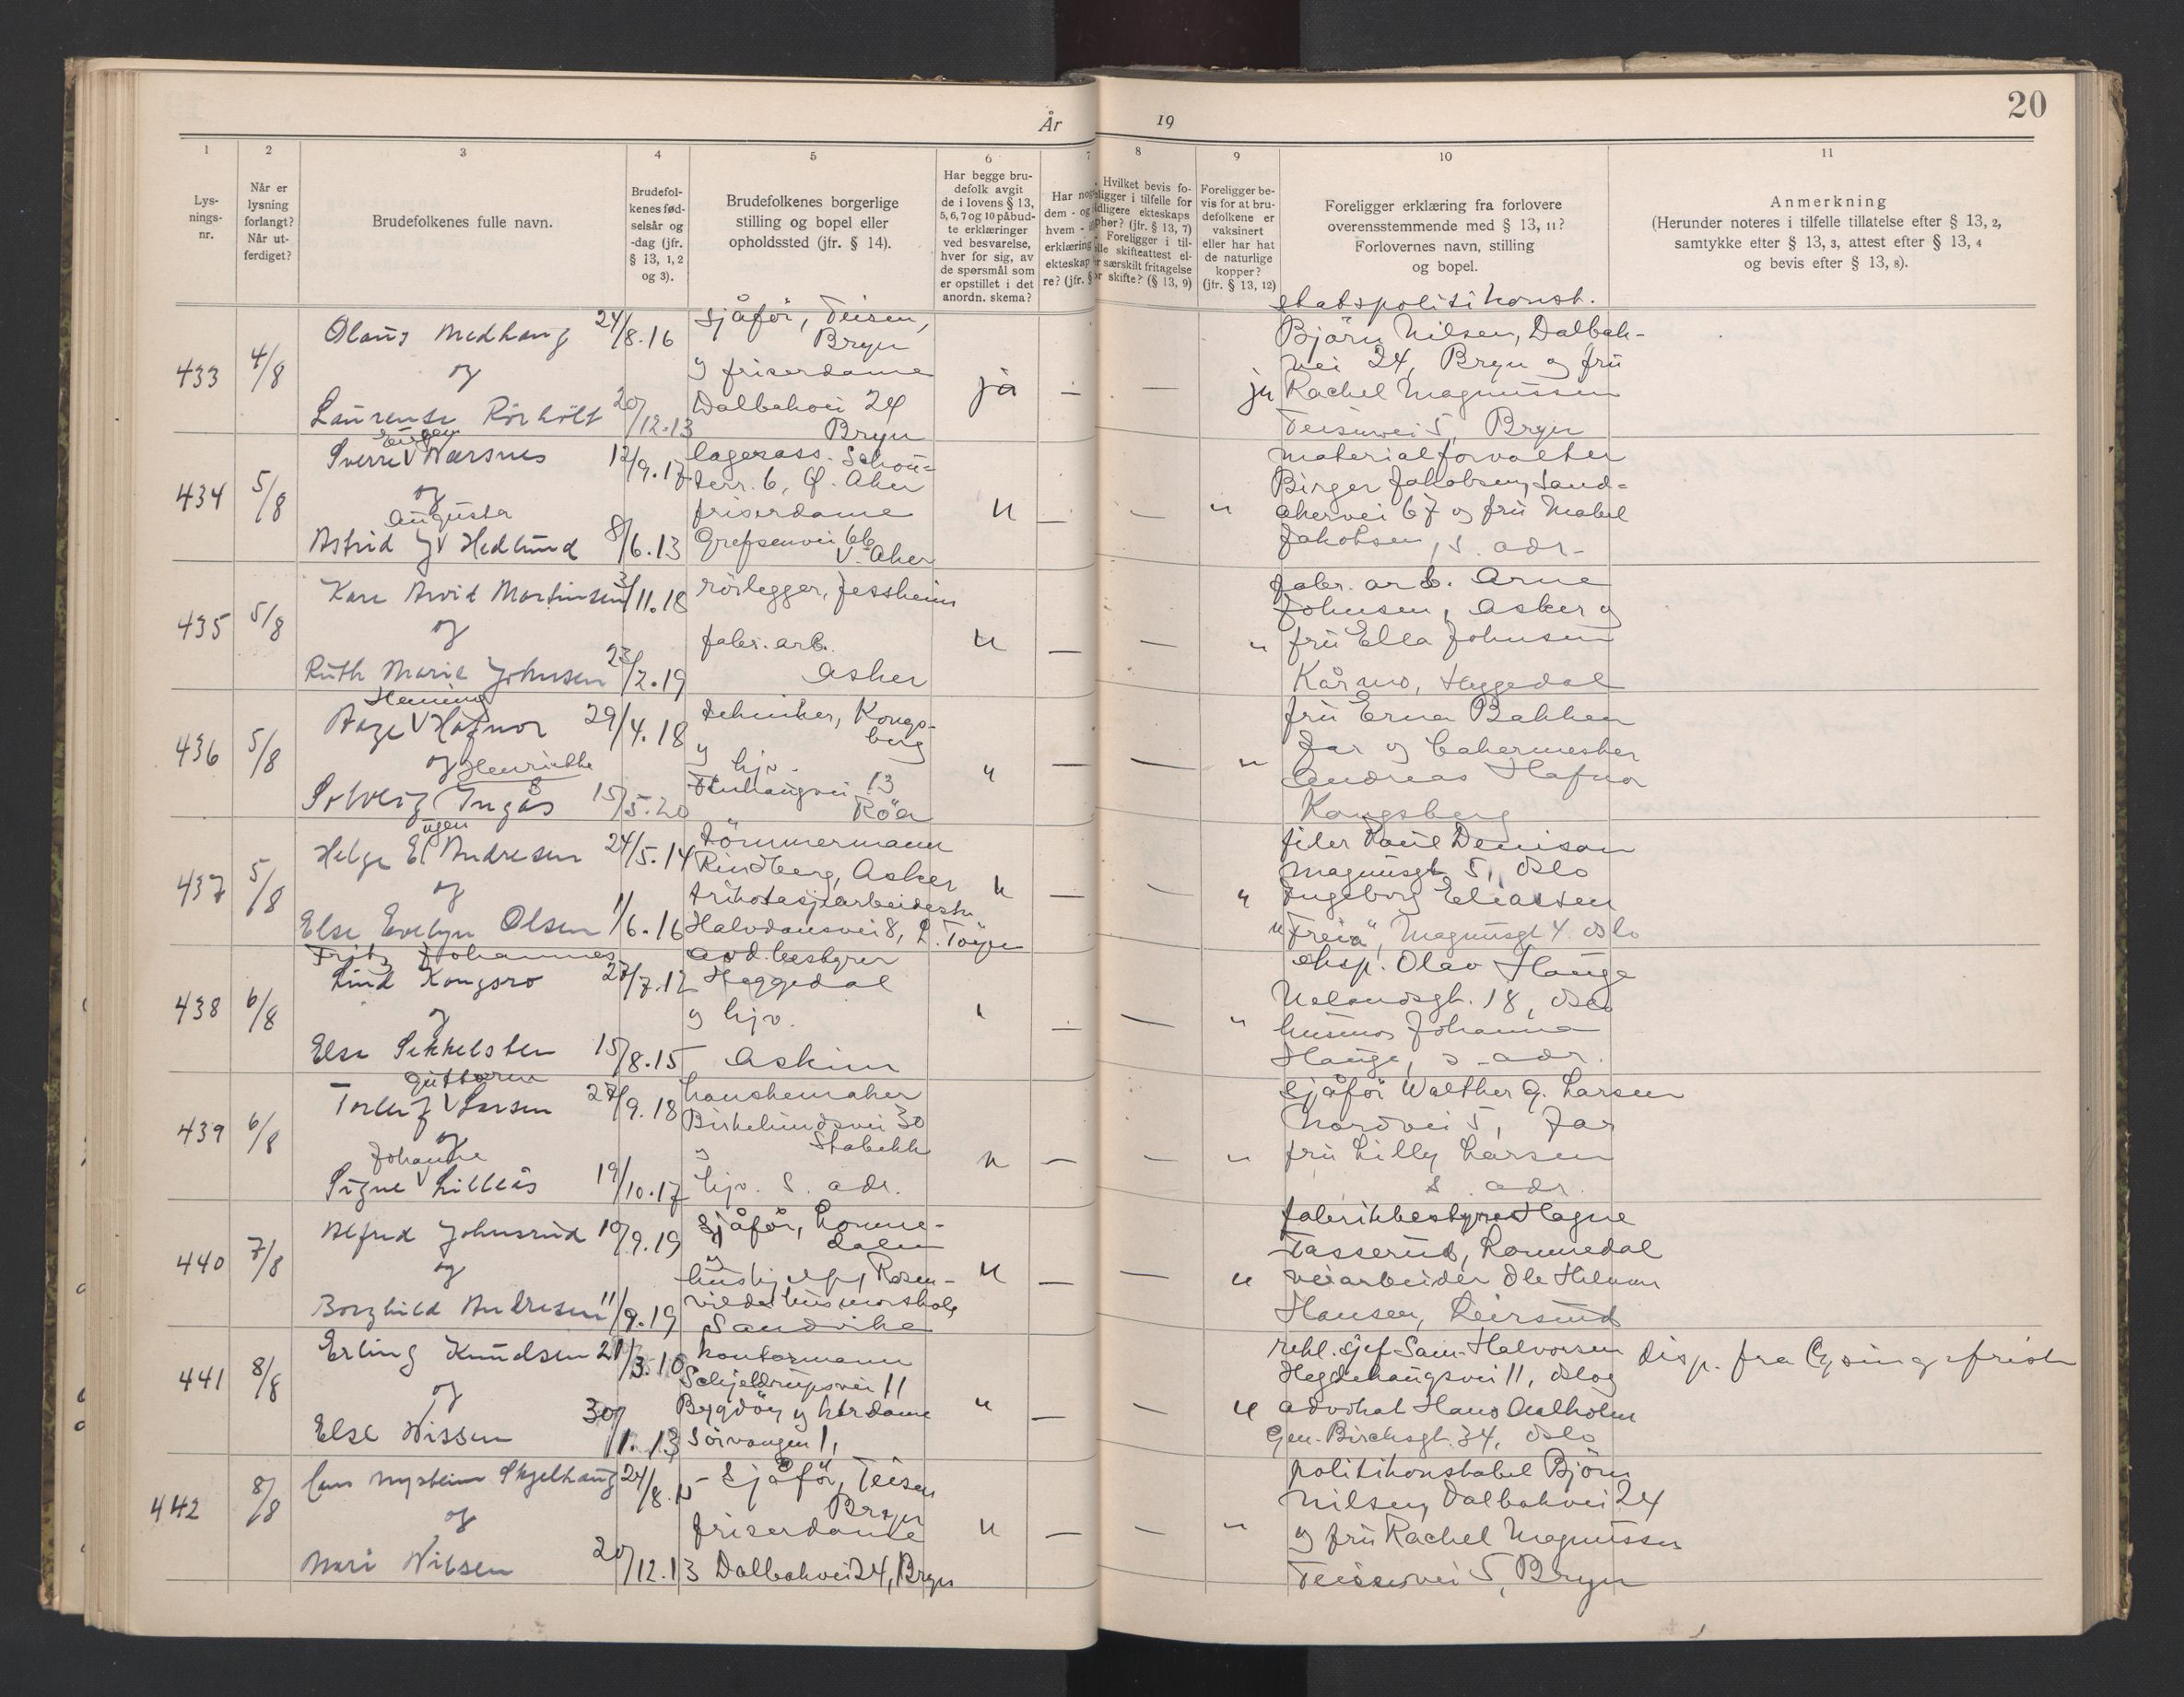 20
År 19
1 2 3 4 5 6 7 8 9 10 11
Lys-
nings-
nr.
Når er
lysning
forlangt?
Når ut-
ferdiget?
Brudefolkenes fulle navn.
Brudefol-
kenes fød-
selsår og
-dag (jfr.
§ 13, 1, 2
og 3).
Brudefolkenes borgerlige
stilling og bopel eller
opholdssted (jfr. § 14).
Har begge bru-
defolk avgit
de i lovens § 13,
5, 6, 7 og 10 påbud-
te erklæringer
ved besvarelse,
hver for sig, av
de spørsmål som
er opstillet i det
anordn. skema?
Har
dem - og
hvem -
erklæring
ekteskap
re? (jfr. §
Hvilket bevis fo-
religger i tilfelle for
tidligere ekteskaps
ophør? (jfr. § 13, 7)
Foreligger i til-
felle skifteattest el-
ler særskilt fritagelse
for skifte? (§ 13, 9)
Foreligger be-
vis for at bru-
defolkene er
vaksinert
eller har hat
de naturlige
kopper?
(jfr. § 13, 12)
Foreligger erklæring fra forlovere
overensstemmende med § 13, 11?
Forlovernes navn, stilling
og bopel.
Anmerkning
(Herunder noteres i tilfelle tillatelse efter § 13, 2,
samtykke efter § 13, 3, attest efter § 13, 4
og bevis efter § 13, 8).
433 4/8
Olaus Medhaug 24/8.16
og
Laurense Rörholt 20/12.13
sjåför, Teisen,
Bryn
og friserdame
Dalbakvei 24
Bryn
ja — — ja
statspolitikonst.
Björn Nilsen, Dalbak-
vei 24, Bryn og frü
Rachel Magnüssen
Teisenvei 5, Bryn
434 5/8
Sverre V Nærsnes 12/9.17
og
Augusta
Astrid J V Hedlünd 8/6.13
lagerass. Schou-
terr. 6, Ø. Aker
friserdame
Grefsenvei 66
V. Aker
" — — "
materialforvalter
Birger Jakobsen, Sand-
akervei 67 og frü Mabel
Jakobsen, s. adr.
435 5/8
Kare Arvid Martinsen 3/11.18
og
Rüth Marie Johnsen 23/2.19
rörlegger, Jessheim
fabr. arb.
Asker
" — — "
fabr. arb. Arne
Johnsen, Asker og
frü Ella Johnsen
Kårmo, Heggedal
436 5/8
Henning
Aage V Hafnor 29/4.18
og Henriette
Solveig Ingås 15/5.20
tekniker, Kongs-
berg
og hjv.
13
Röa
" — — "
frü Erna Bakken
Jar og bakermester
Andreas Hafnor
Kongsberg
437 5/8
ügen
Helge E V Andresen 24/5.14
og
Else Evelyn Olsen 1/6.16
tömmermann
Rindberg, Asker
trikotasjearbeiderske
Halvdansvei 8, L. Töyen
" — — "
filer Paul Denison
Magnusgt 5, Oslo
Ingeborg Eliassen
"Freia", Magnusgt 4. Oslo
438 6/8
Fritz Johannes
Lind Kongsro 27/7.12
og
Else Sikkelsten 15/8.15
avd. bestyrer
Heggedal
og hjv.
Askim
" — — "
eksp. Olav Hauge
Uelandsgt. 18, Oslo
husmor Johanna
Hauge, s. adr.
439 6/8
Guttorm
Torleif V Larsen 27/9.18
og
Johanne
Signe V Lilleås 19/10.17
hanskemaker
Birkelundsvei 30
Stabekk
og
hjv. s. adr.
" — — "
sjåför Walther G. Larsen
Nordvei 5, Jar
frü Lilly Larsen
s. adr.
440 7/8
Alfred Johnsrüd 10/9.19
og
Borghild Andresen 11/9.19
sjåför, Lomme-
dalen
og
hushjelp, Rosen-
vilde husmorskole
Sandvika
" — — "
fabrikkbestyrer Hagne
Tasserud, Lommedal
veiarbeider Ole Helmer
Hansen, Leirsund
441 8/8
Erling Knudsen 21/3.10
og
Else Nissen 30/1.13
kontormann
Schjeldrupsvei 11
Bygdöy og kordame
Sörvangen 1,
" — — "
rekl. sjef Sam Halvorsen
Hegdehaugsvei 11, Oslo og
advokat Hans Aalholm
Gen. Birchsgt. 34, Oslo
disp. fra lysingsfrist
442 8/8
Skjelhaug 24/8.15
og
Mari Nilsen 20/12.13
- sjåför, Teisen
Bryn
friserdame
Dalbakvei 24, Bryn
" — — "
politikonstabel Björn
Nilsen, Dalbakvei 24
og frü Rachel Magnüssen
Teisenvei 5, Bryn